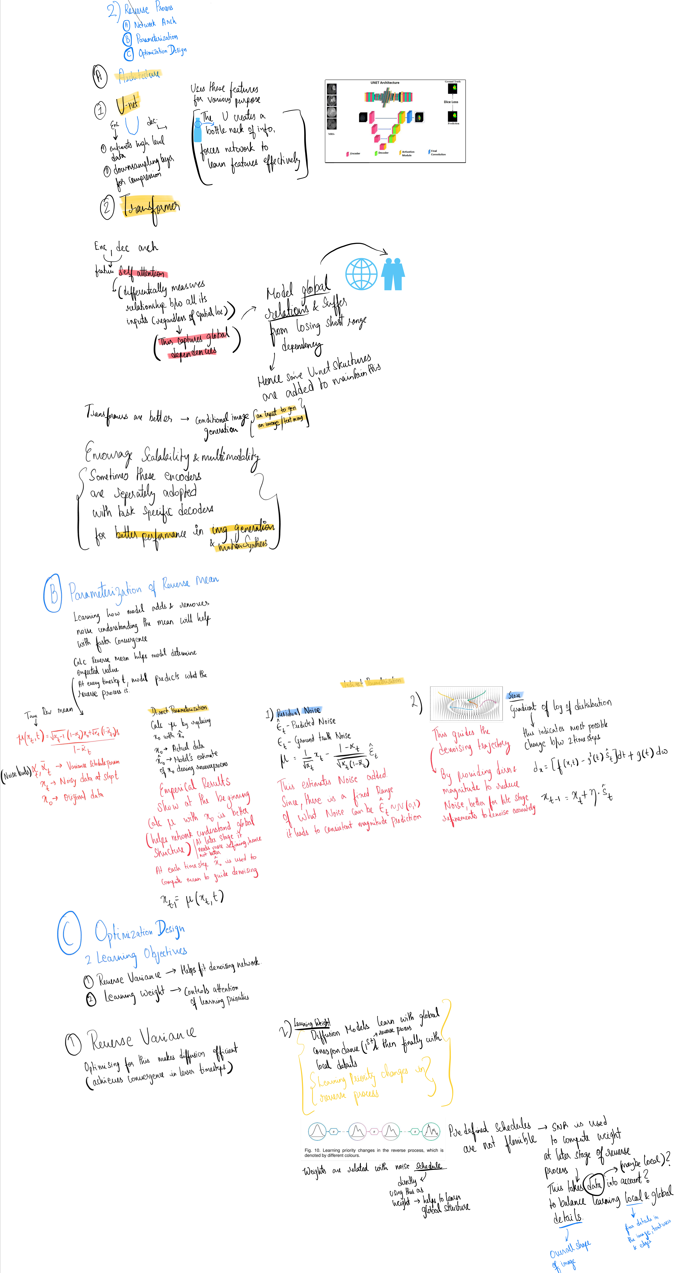 2) Reverse Process
A Network Arch
B Parameterization
C Optimization Design
A Architecture
1 U-net
Enc dec
1 extracts high level
data
2 downsampling layers
for compression
Uses these features
for various purpose
The U creates a
bottle neck of info,
forces network to
learn features effectively
UNET Architecture
2 Transformer
Enc, dec arch
feature self attention
(differentially measures
relationship b/w all its
inputs (regardless of spatial loc)
This captures global
dependencies
Model global
relations & suffer
from losing short range
dependency
Hence some U-net structures
are added to maintain this
Transformers are better → conditional image
generation
an input to gen
an image/text
Encourage Scalability & multimodality
Sometimes these encoders
are seperately adopted
with task specific decoders
for better performance in img generation
& motion synthesis
B Parameterization of Reverse Mean
Learning how model adds & removes
noise understanding the mean will help
with faster convergence
Calc Reverse mean helps model determine
expected value
At every timestep t, model predicts what the
reverse process is
True Rev mean
x_t → Noisy data at step t
x_0 → Original data
Direct Parameterization
Calc μ by replacing
x_0 with x̂_0
x_0 → Actual data
x̂_0 → Model's estimate
of x_0 during reverse process
Emperical Results
Show at the beginning
calc μ with x_0 is better
(helps network understand global
structure)
At each timestep x̂_0 is used to
compute mean to guide denoising
x_{t-1} = μ(x_t, t)
1) Residual Noise
ε̂_t - Predicted Noise
ε_t - Ground truth Noise
This estimates Noise added
Since, there is a fixed Range
of what Noise can be ε_t ~ N(0,1)
it leads to consistent magnitude prediction
2)
Score
Gradient of log of distribution
this indicates most possible
change b/w 2 timesteps
dx = [f(x,t) - g²(t) ŝ_t]dt + g(t) dω
x_{t-1} = x_t + η · ŝ_t
This guides the
denoising trajectory
By providing
magnitude to reduce
Noise, better for late stage
refinements to denoise accurately
C Optimization Design
2 Learning Objectives
1 Reverse Variance → Helps fit denoising network
2 Learning Weight → Controls attention
of learning priorities
1 Reverse Variance
Optimising for this makes diffusion efficient
(achieves convergence in lesser timesteps)
2) Learning Weight
Diffusion Models learn with global
correspondance (1st) then finally with
reverse process
local details
Learning Priority changes in
reverse process
Fig. 10. Learning priority changes in the reverse process, which is
denoted by different colours.
Weights are related with noise schedule
directly
using this as
weight → helps to learn
global structure
Pre defined schedules → SNR is used
are not flexible
to compute weight
at later stage of reverse
process
(maybe local)?
This takes data into account?
to balance learning local & global
details
overall shape
of image
fine details in
the image, texture
& edges